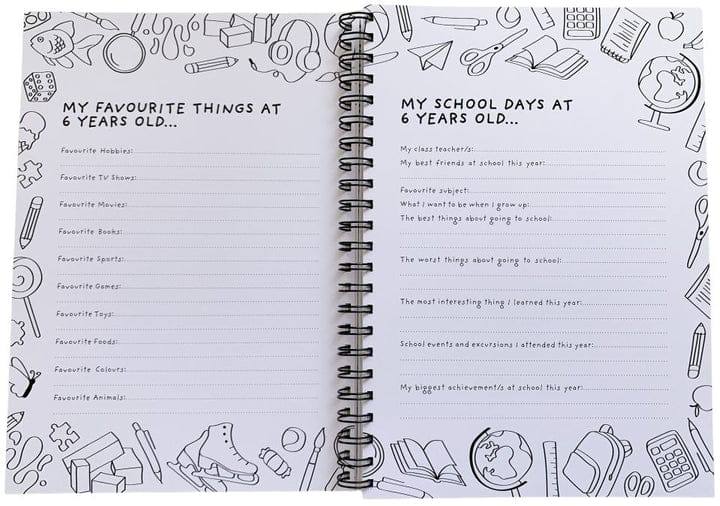 MY FAVOURITE THINGS AT
6 YEARS OLD...
Favourite Hobbies:
Favourite TV Shows:
Favourite Movies:
Favourite Books:
Favourite Sports:
Favourite Games:
Favourite Toys:
Favourite Foods:
Favourite Colours:
Favourite Animals:
MY SCHOOL DAYS AT
6 YEARS OLD...
My class teacher/s:
My best friends at school this year:
Favourite subject:
What I want to be when I grow up:
The best things about going to school:
The worst things about going to school:
The most interesting thing I learned this year:
School events and excursions I attended this year:
My biggest achievement/s at school this year: